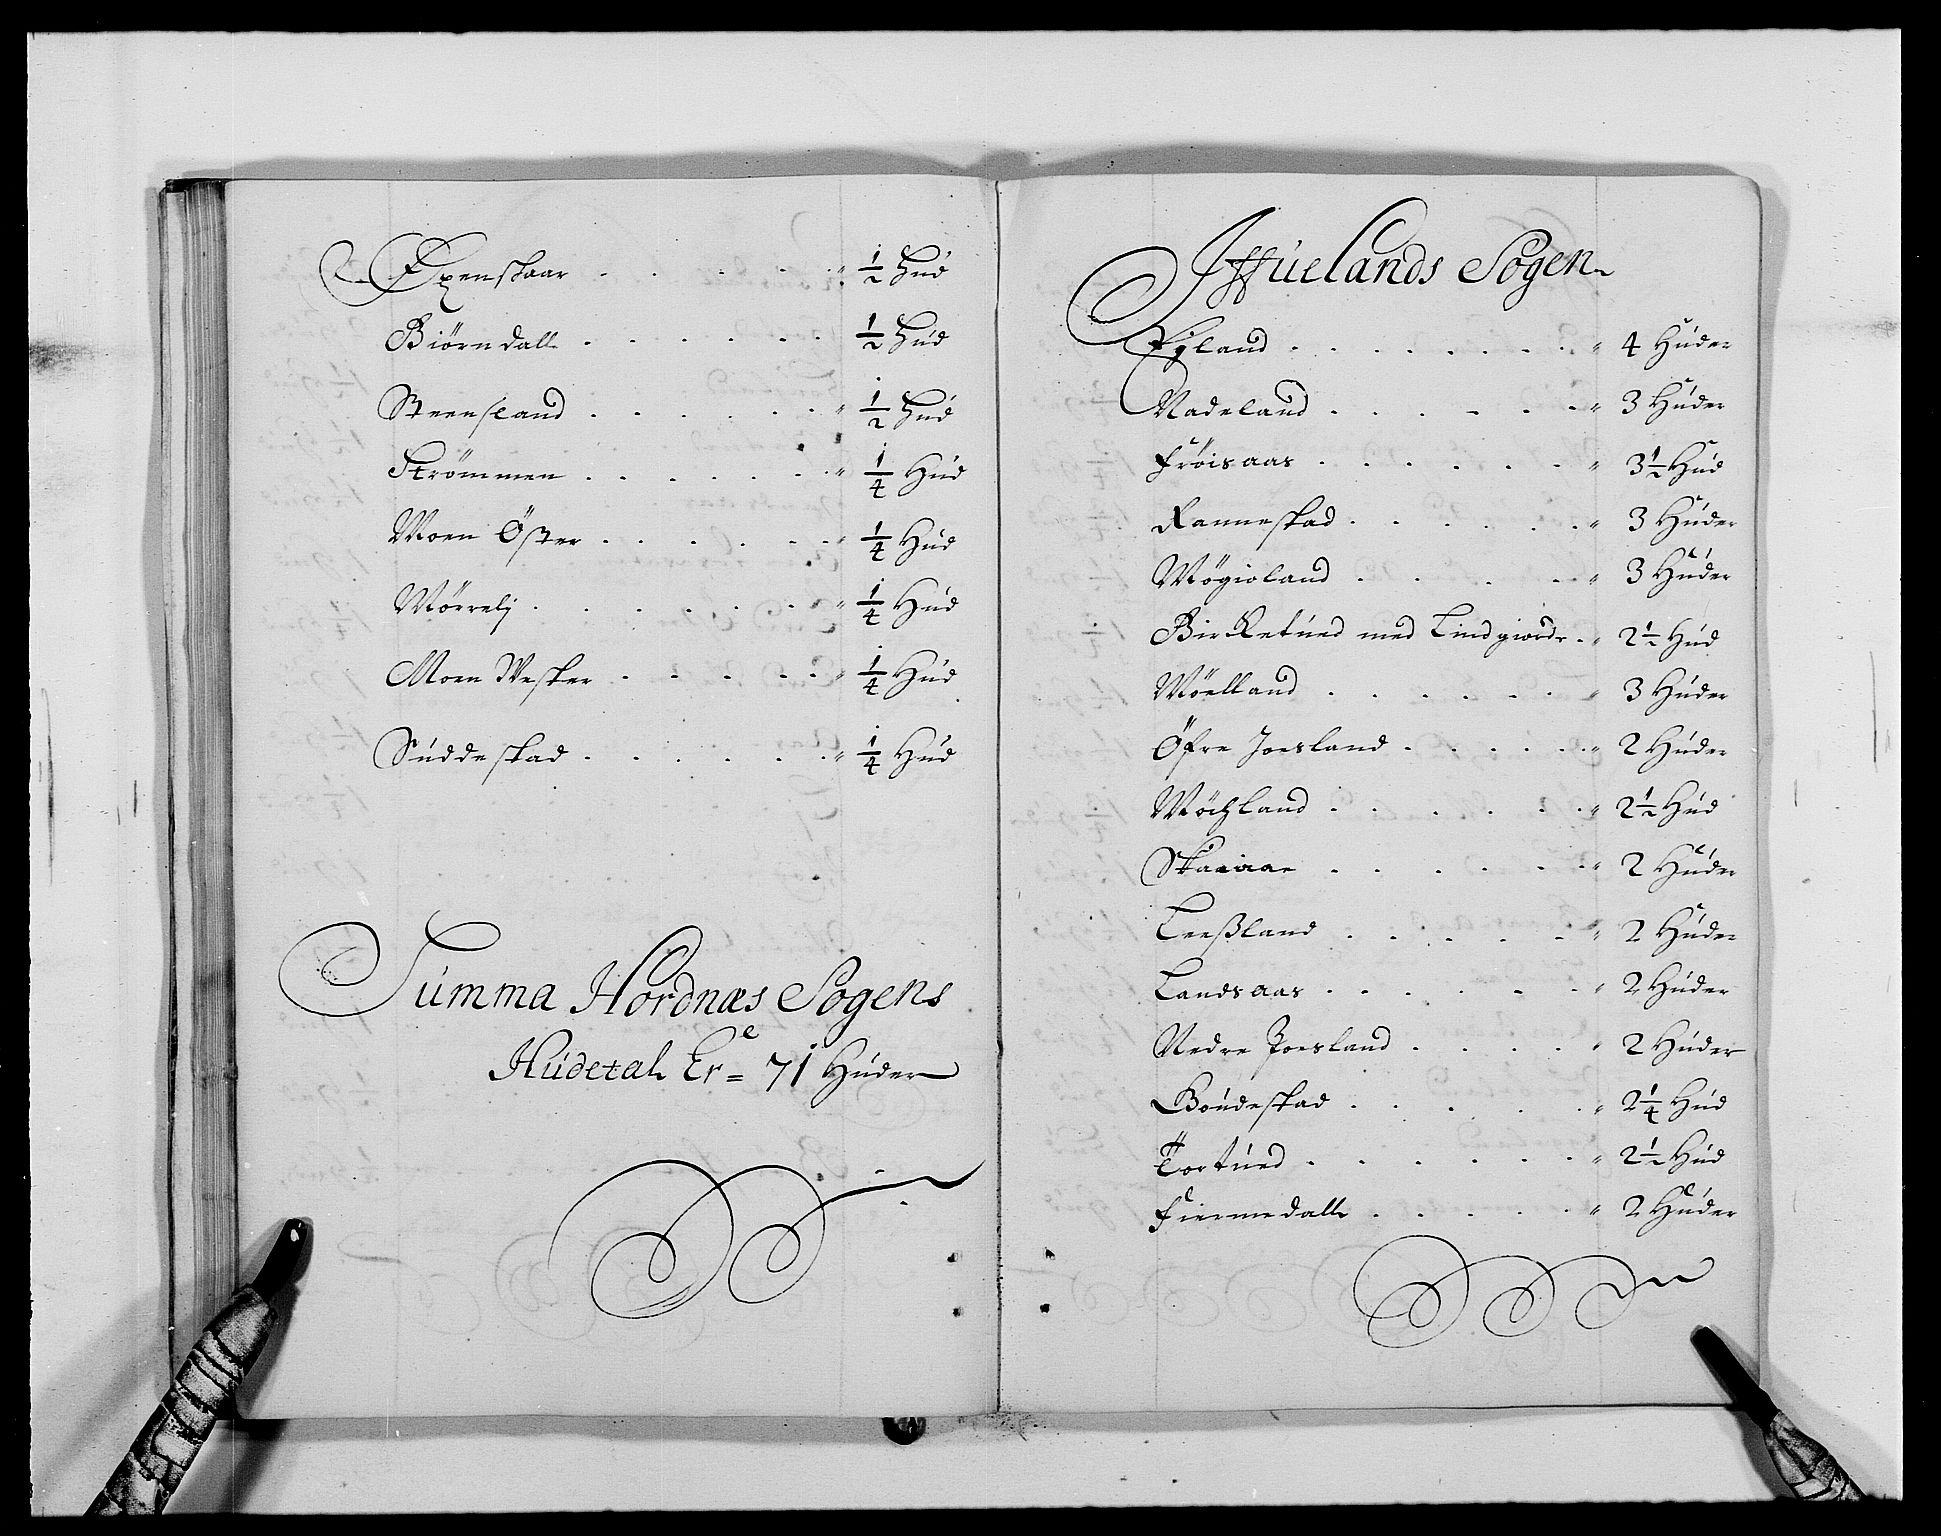 Expenskaar . . . . . . " 1/2 Hud
Biörndall . . . . . . 1/2 Hud
Steensland . . . . . . " 1/2 Hud
Strömmen . . . . . . " 1/4 Hud
Moen Öster . . . . . " 1/4 Hud
Mörrelj . . . . . . " 1/4 Hud
Moen Wester . . . . . " 1/4 Hud
Suddestad . . . . . . " 1/4 Hud
Summa Hordnæs Sogens
Hudetal Ere = 71 Huder
Iffuelands Sogen
Eyland . . . . . . . " 4 Huder
Nadeland . . . . . . " 3 Huder
Fröisaas . . . . . . " 3 1/2 Hud
Rannestad . . . . . . " 3 Huder
Mögioland . . . . . " 3 Huder
Birketued med Lindgiordr . " 2 1/2 Hud
Möelland . . . . . . " 3 Huder
Öfre Joesland . . . . . " 2 Huder
Möchland . . . . . . " 2 1/2 Hud
Skaiaae . . . . . . " 2 Huder
Leeßland . . . . . . " 2 Huder
Landsaas . . . . . . " 2 Huder
Nedre Joesland . . . . " 2 Huder
Boudestad . . . . . . " 2 1/4 Hud
Tortued . . . . . . " 2 1/2 Hud
Fiermedall . . . . . " 2 Huder